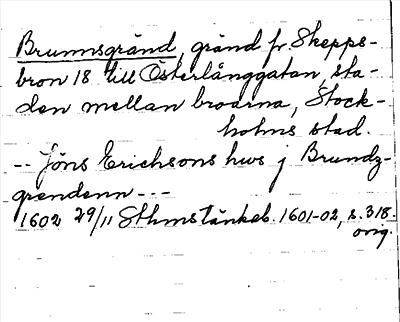 Brunnsgränd, gränd fr Skepps-
bron 18 till Österlånggatan, sta-
den mellan broarna, Stock-
holms stad.
-- Jöns Erichsons hws j Brundz-
grendenn ---
1602 29/11 Sthms tänkeb. 1601-02, s. 318.
orig.